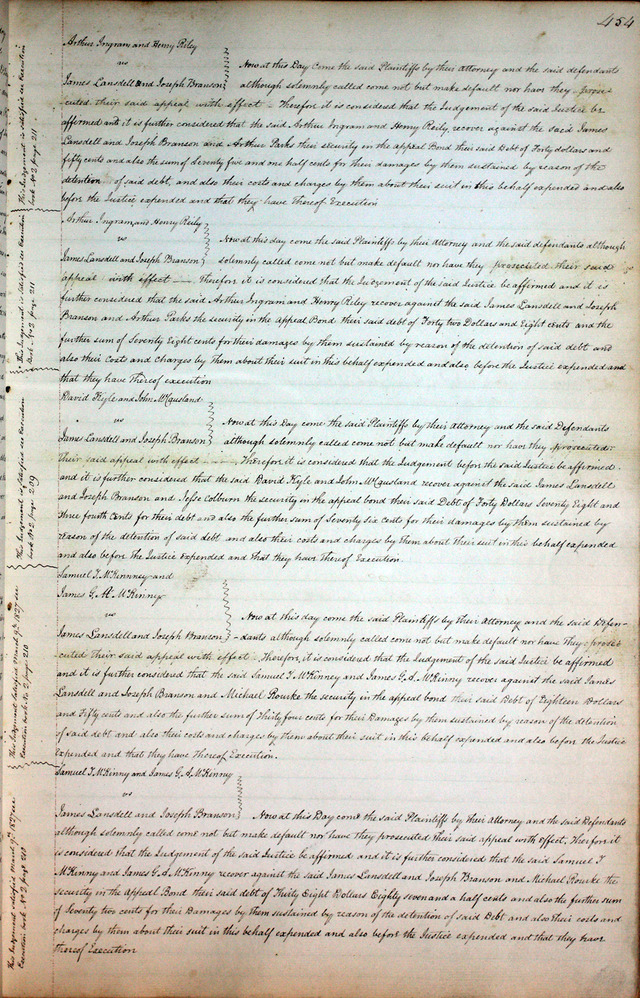 454
Arthur Ingram and Henry Riley
vs
James Lansdell and Joseph Branson
Now at this Day Come the said Plaintiffs by their Attorney and the said defendants
although solemnly called come not but make default nor have they prose-
cuted their said appeal with effect Therefor it is considered that the Judgement of the said Justice be
affirmed and it is further considered that the said Arthur Ingram and Henry Reily, recover against the said James
Lansdell and Joseph Branson and Arthur Parks their security in the appeal Bond their said Debt of Forty dollars and
fifty cents and also the sum of Seventy five and one half cents for their damages by them sustained by reason of the
detention of said debt, and also their costs and charges by them about their suit in this behalf expended and also
before the Justice expended and that they have Thereof Execution
Arthur Ingram and Henry Reily
vs
James Lansdell and Joseph Branson
Now at this day come the said Plaintiffs by their Attorney and the said defendants although
solemnly called come not but make default nor have they prosecuted their said
appeal with effect Therefor it is considered that the Judgement of the said Justice be affirmed and it is
further considered that the said Arthur Ingram and Henry Riley recover against the said James Lansdell and Joseph
Branson and Arthur Parks the security in the appeal Bond their said debt of Forty two Dollars and Eight cents and the
further sum of Seventy Eight cents for their damages by them sustained by reason of the detention of said debt and
also their Costs and charges by Them about their suit in this behalf expended and also before the Justice expended and
that they have Thereof execution
David Kyle and John McCausland
vs
James Lansdell and Joseph Branson
Now at this Day come the said Plaintiffs by their Attorney and the said Defendants
although solemnly called come not but make default nor have they prosecuted
their said appeal with effect Therefor it is considered that the Judgement before the said Justice be affirmed
and it is further considered that the said David Kyle and John McCausland recover against the said James Lansdell
and Joseph Branson and Jesse Colburn the security in the appeal bond their said Debt of Forty Dollars Seventy Eight and
three fourth Cents for their debt and also the further sum of Seventy six cents for their damages by them sustained by
reason of the detention of said debt and also their costs and charges by them about their suit in this behalf expended
and also before the Justice expended and that they have Thereof Execution.
Samuel T. McKinney and
James G. A. McKinney
vs
James Lansdell and Joseph Branson
Now at this day come the said Plaintiffs by their Attorney and the said Defen-
dants although solemnly called come not but make default nor have They prose-
cuted Their said appeal with effect Therefor, it is considered that the Judgement of the said Justice be affirmed
and it is further considered that the said Samuel T McKinney and James G. A. McKinny recover against the said James
Lansdell and Joseph Branson and Michael Rourke the security in the appeal bond their said Debt of Eighteen Dollars
and Fifty cents and also the further sum of Thirty four cents for their Damages by them sustained by reason of the detention
of said debt and also their costs and charges by them about their suit in this behalf expended and also before the Justice
expended and that they have Thereof Execution.
Samuel T McKinny and James G. A. McKinny
vs
James Lansdell and Joseph Branson
Now at this Day come the said Plaintiff by their Attorney and the said Defendants
although solemnly called come not but make default nor have they prosecuted their said appeal with effect, Therefor it
is considered that the Judgement of the said Justice be affirmed and it is further considered that the said Samuel T
McKinny and James G. A McKinny recover against the said James Lansdell and Joseph Branson and Michael Rourke the
security in the appeal Bond their said debt of Thirty Eight Dollars Eighty seven and a half cents and also the further sum
of Seventy two cents for their Damages by Them sustained by reason of the detention of said Debt and also their costs and
charges by them about their suit in this behalf expended and also before the Justice expended and that they have
thereof Execution
This Judgement is satisfied see Execution
book No 2 page 211
This Judgement is satisfied see Execution
book No 2 page 211
This Judgement is satisfied see Execution
book No 2 page 209
This Judgement satisfied March 9th 1827 see
Execution book No 2 page 210
This Judgement satisfied March 9th 1827 see
Execution book No 2 page 210